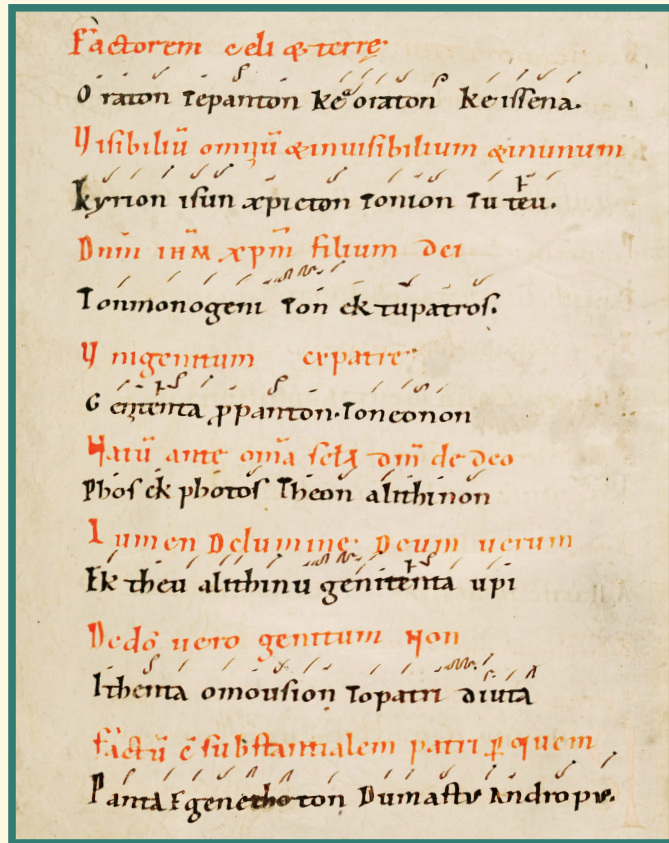 Factorem celi & terrę.
O raton tepanton ke oraton keissena.
Visibiliū omniū & inuisibilium & inunum
Kyrion isun xpicton tonion tu teu.
Dnm ihm xpm filium dei
Tonmonogeni ton ek tupatros.
Vnigenitum expatre
G enitenta ppanton. Toneonon
Natū ante oma dm de deo
Phos ek photos Theon alithinon
Lumen Delumine. Deum uerum
Ek theu alithinu genitenta upi
Dedō uero genitum Non
Ithenta omousion Topatri diuta
factū ē substantialem patri p quem
Panta Egene ton Dumastus Andropus.